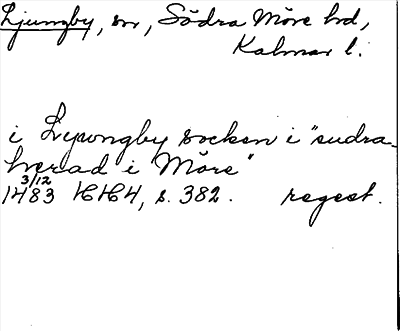 Ljungby, sn, Södra Möre hd,
Kalmar l.
i Lywngby socken i "sudra
herad i Möre"
3/12
1483 HH4, s. 382. regest.